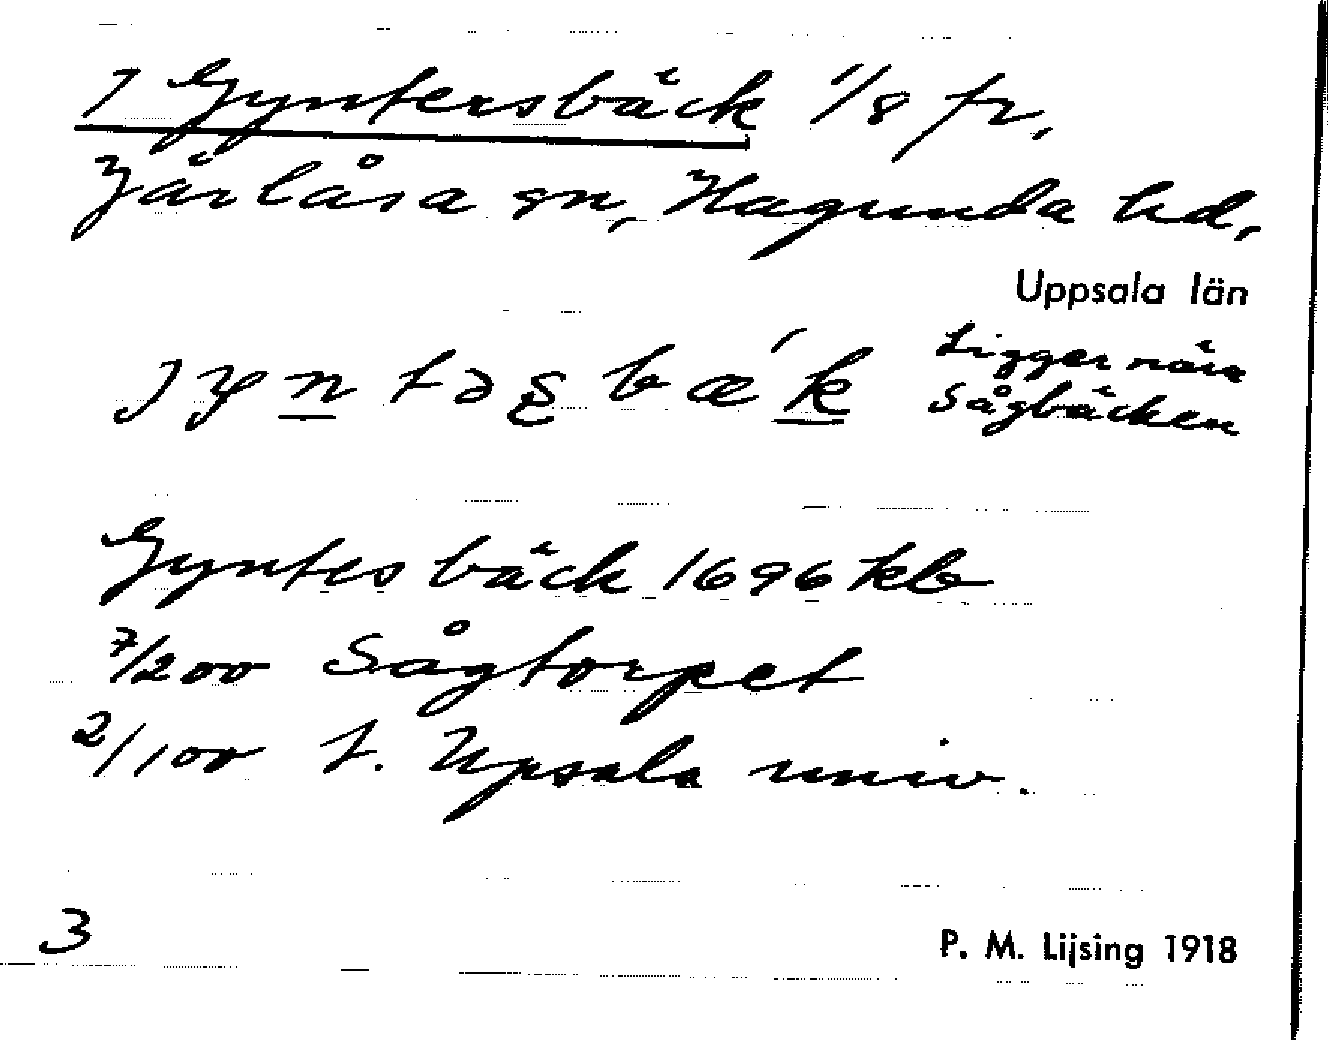 1 Gyntersbäck 1/8 fr.
Järlåsa sn, Hagunda hd,
Uppsala län
Ligger nära
Sågbäcken
Gyntesbäck 1696 kb
7/200 Sågtorpet
2/100 t. Upsala univ.
3
P. M. Lijsing 1918